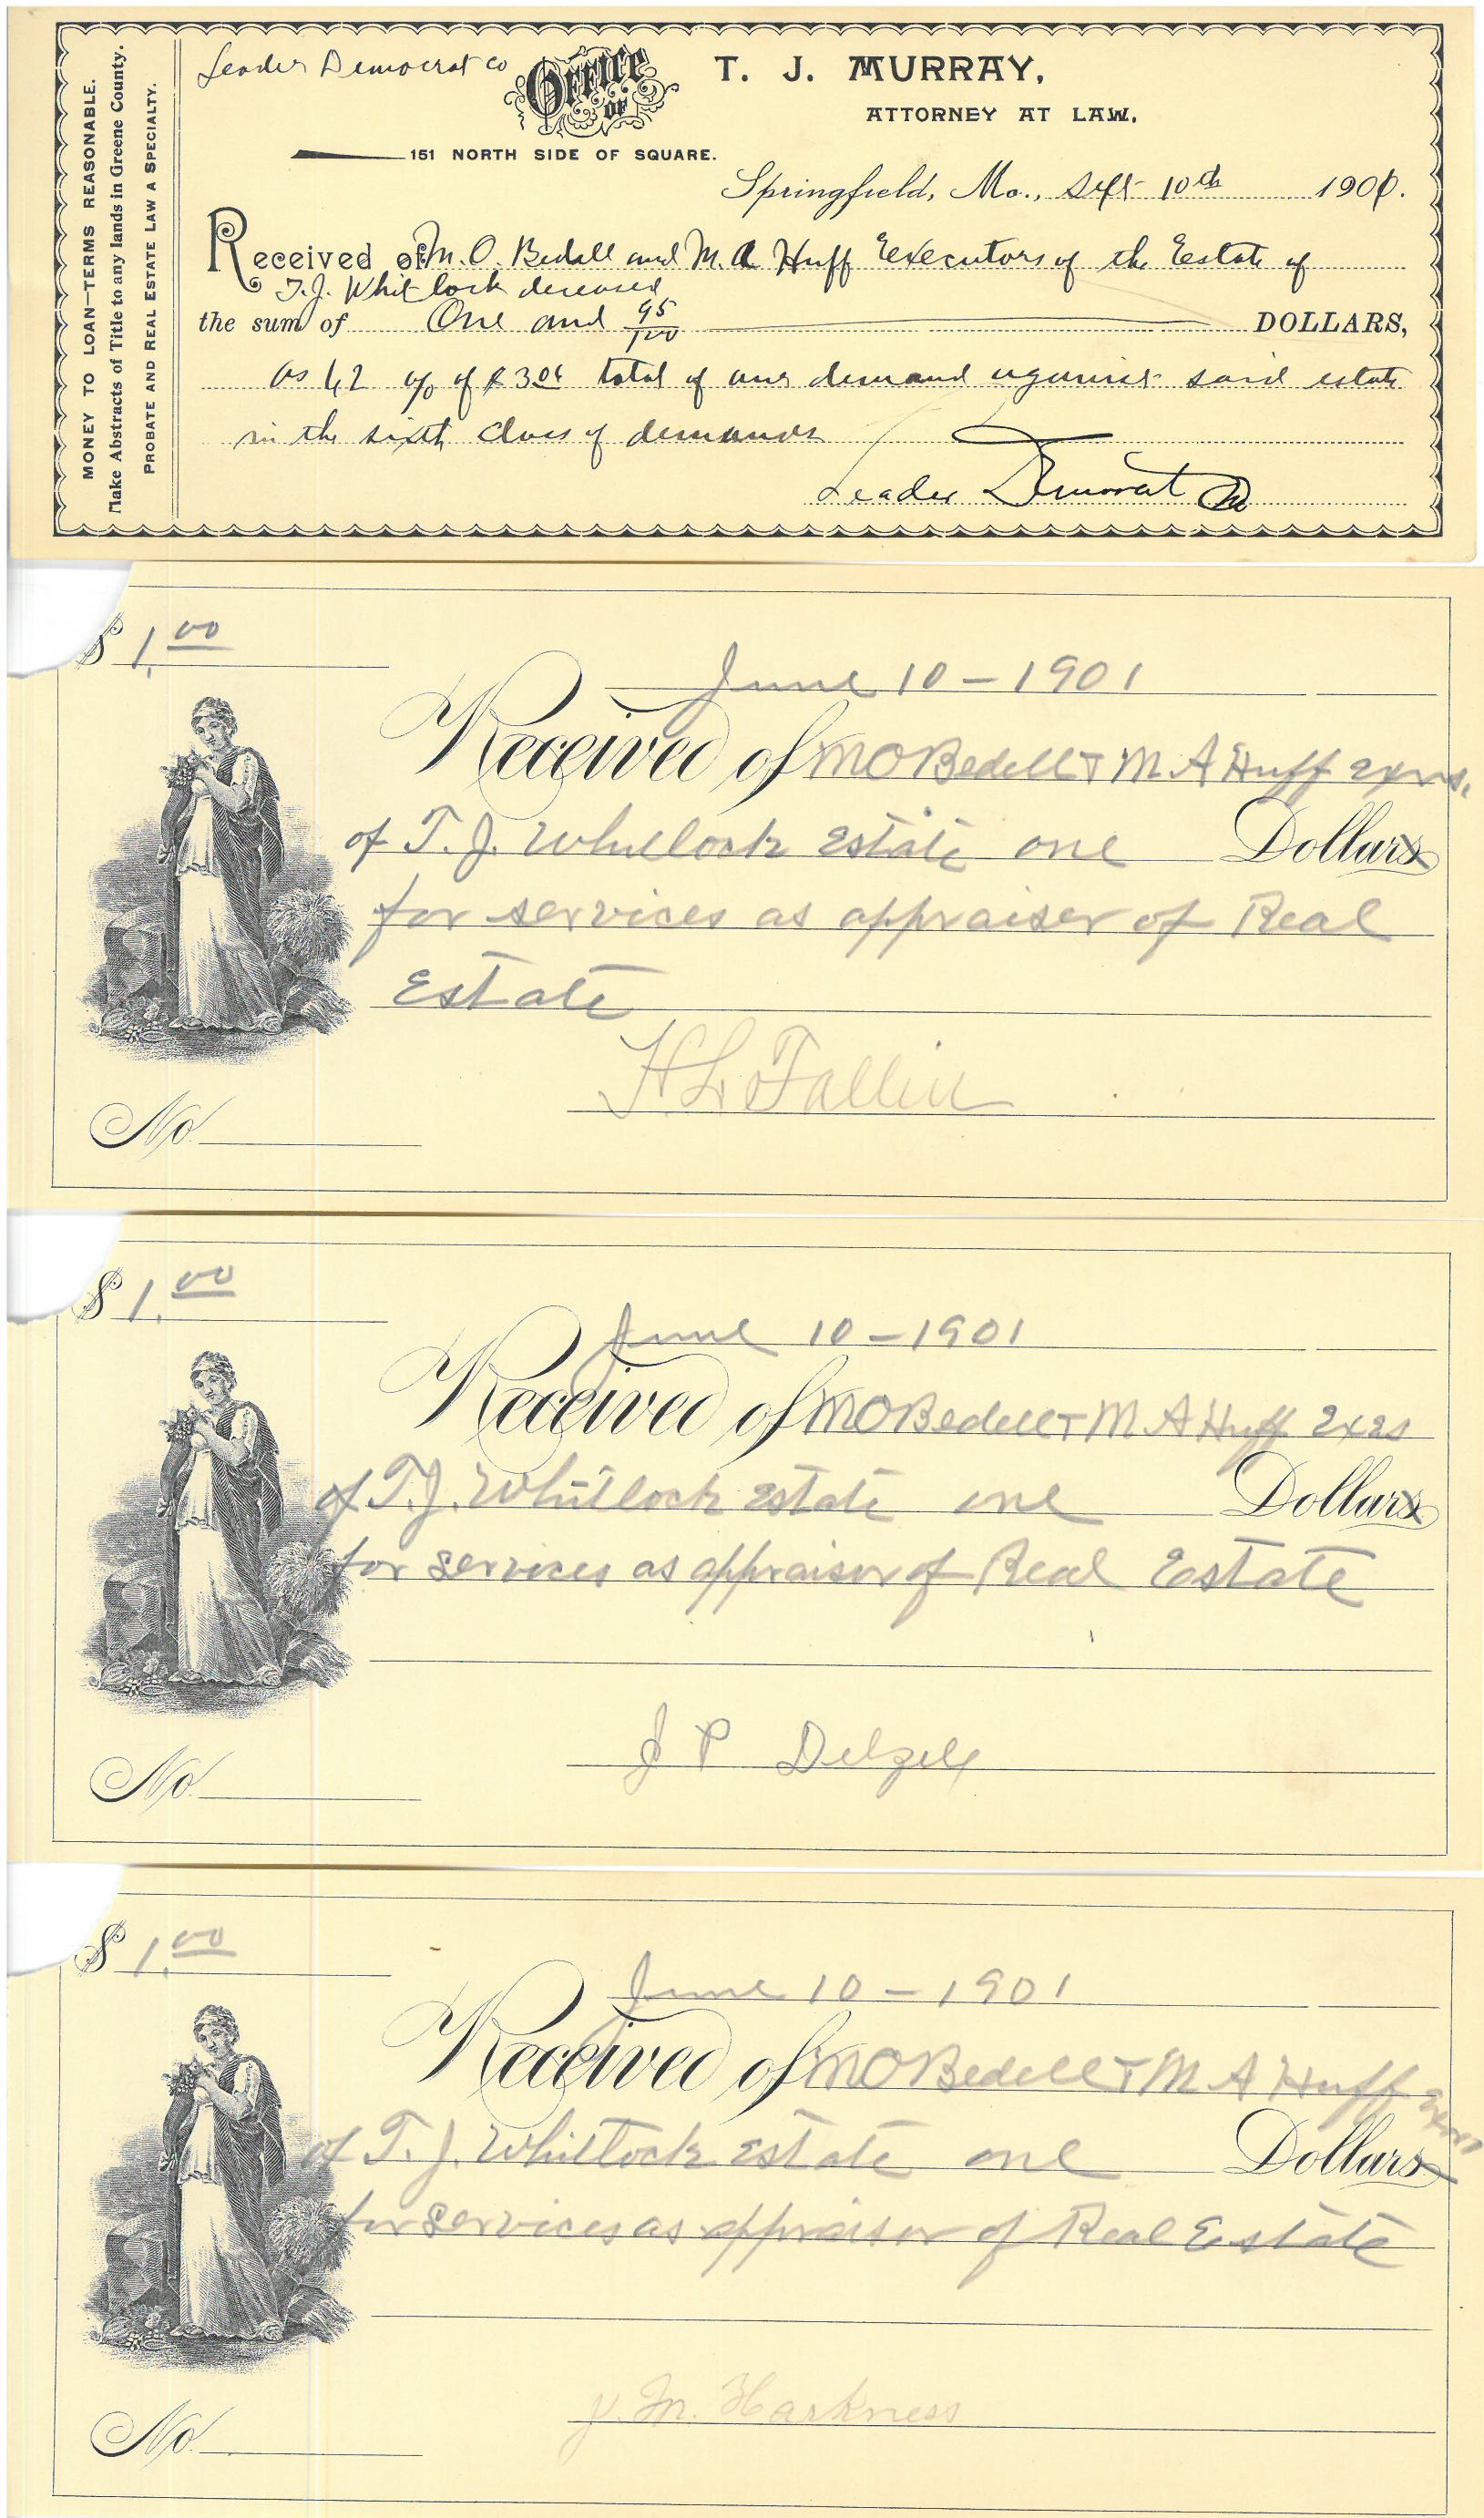 MONEY TO LOAN—TERMS REASONABLE.
Make Abstracts of Title to any lands in Greene County.
PROBATE AND REAL ESTATE LAW A SPECIALTY.
Leader Democrat Co
OFFICE OF
T. J. MURRAY,
ATTORNEY AT LAW,
151 NORTH SIDE OF SQUARE.
Springfield, Mo., Sept 10th 1901.
Received of M. O. Bedell and M. A Huff Executors of the Estate of
T. J. Whitlock deceased
the sum of One and 95/100 DOLLARS,
as 62 % of $ 3.06 total of our demand against said estate
in the sixth Class of demands
Leader Democrat Co
$ 1.00
June 10 - 1901
Received of M O Bedell + M A Huff exrs.
of T. J. Whitlock Estate one Dollars
for services as appraiser of Real
Estate
H L Fallin
No.
$ 1.00
June 10 - 1901
Received of M O Bedell + M A Huff Exrs
of T. J. Whitlock Estate one Dollars
for services as appraisor of Real Estate
J P Delzell
No.
$ 1.00
June 10 - 1901
Received of M O Bedell + M A Huff Exrs
of T. J. Whittock Estate one Dollars
for services as appraisor of Real Estate
J. M. Harkness
No.